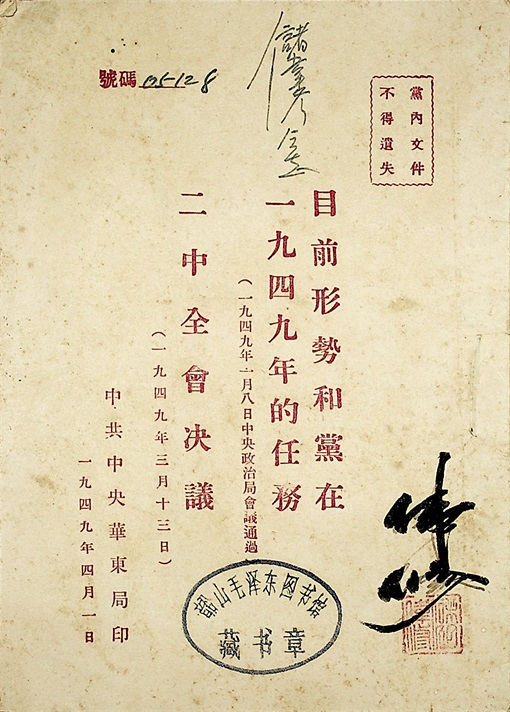 黨內文件
不得遺失
號碼 05-128
目前形勢和黨在
一九四九年的任務
(一九四九年一月八日中央政治局會議通過)
二中全會決議
(一九四九年三月十三日)
中共中央華東局印
一九四九年四月一日
韶山毛泽东图书馆
藏书章